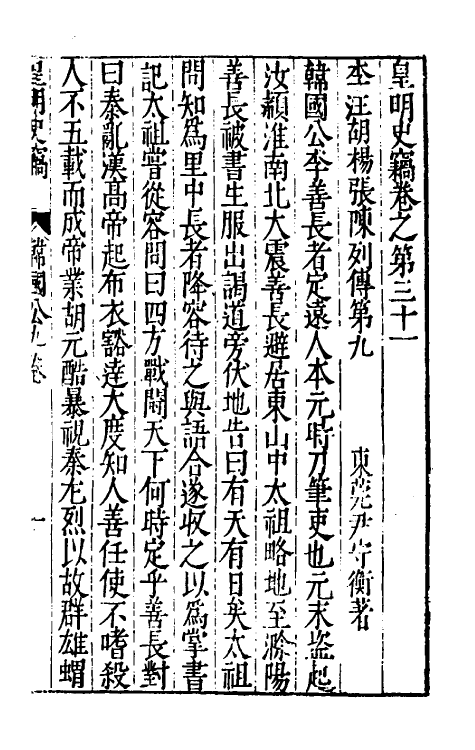 皇明史竊卷之第三十一
李汪胡楊張陳列傳第九　東莞尹守衡著
韓國公李善長者定遠人本元時刀筆吏也元末盜起
汝潁淮南北大震善長避居東山中太祖略地至滁陽
善長被書生服出謁道旁伏地告曰有天有日矣太祖
問知為里中長者降容待之與語合遂收之以為掌書
記太祖嘗從容問曰四方戰鬪天下何時定乎善長對
曰秦亂漢髙帝起布衣豁達大度知人善任使不嗜殺
人不五載而成帝業胡元酷暴視秦尤烈以故群雄蝟
皇明史竊　韓國公九卷　一